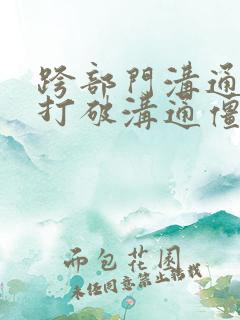 跨部門溝通
打破溝通僵
而包花園
未经同意禁止转载